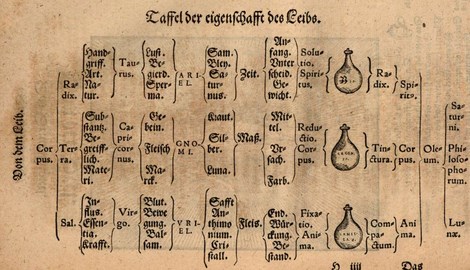 Taffel der eigenschafft des Leibs.
Von dem Leib.
Cor
pus.
Ra
dix.
Ter
ra.
Sal.
Hand-
griff.
Art.
Na-
tur.
Sub-
stantz.
Be-
greiff-
lich.
Mate-
ri.
In-
flus.
Essen-
tia.
Krafft.
Tau-
rus.
Ca-
pri-
cor-
nus.
Vir-
go.
Lust.
Be-
gierd.
Sper-
ma.
Ge-
bein.
Fleisch
Marck.
Blut.
Bewe
gung.
Bal-
sam.
ARI-
EL.
GNO-
MI.
VRI-
EL.
Sam.
Bley.
Sa-
tur-
nus.
Haut.
Sil-
ber.
Luna.
Safft
An-
thimo
nium.
Cri-
stall.
Zeit.
Maß.
An-
fang.
Vnter
scheid.
Ge-
wicht.
Mit-
tel.
Vr-
sach.
Farb.
End.
Wür-
ckung.
Be-
stand.
Solu-
tio.
Spiri-
tus.
Redu-
ctio.
Cor-
pus.
Fixa-
tio.
Ani-
ma.
Ra-
dix.
Tin-
ctura.
Com-
pa-
ctu.
Spi-
rits.
Cor
pus.
Ani
ma.
Ole-
um.
Sa-
tur-
ni.
Phi-
loso-
pho-
rum.
Lu-
næ.
H iiij
Das